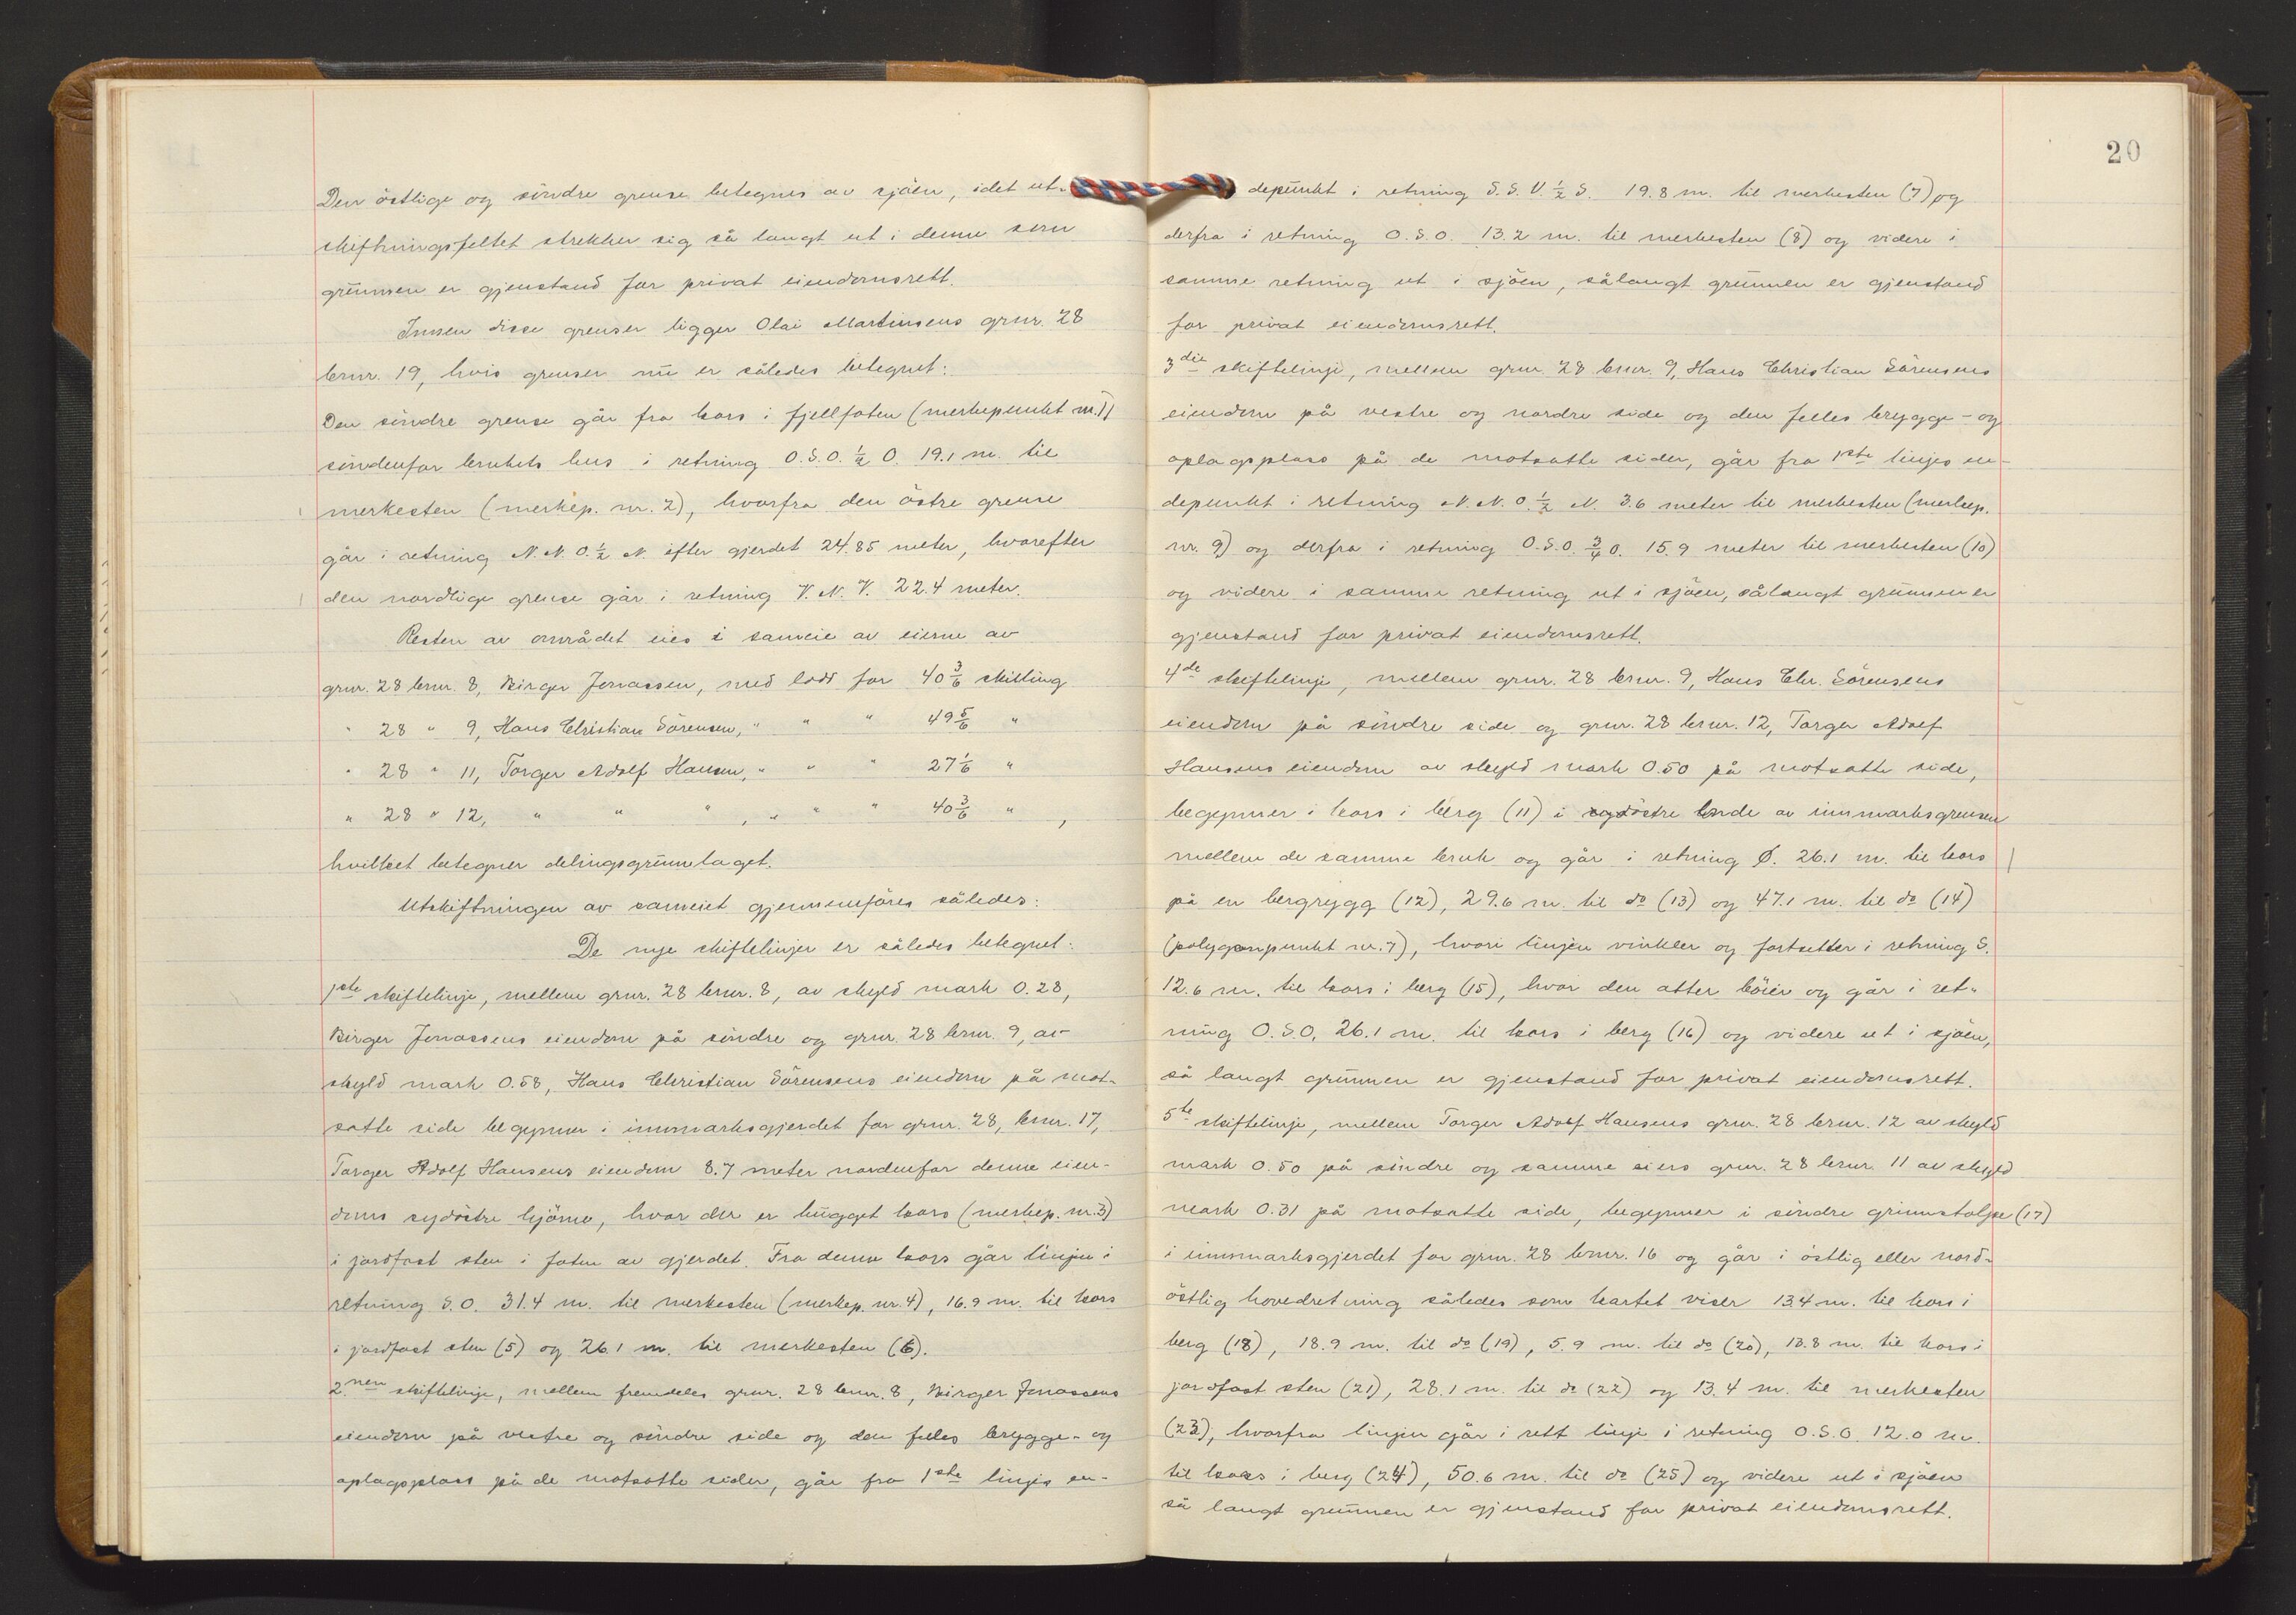 Den östlige og söndre grense betegnes av sjöen, idet ut-
skiftningsfeltet strekker sig så langt ut i denne som
grunnen er gjenstand for privat eiendomsrett.
Innen disse grenser ligger Olai Martinsens grnr. 28
brnr. 19, hvis grenser nu er således betegnet:
Den söndre grense går fra kors i fjellfoten (merkepunkt nr. 1)
söndenfor brukets hus i retning O.S.O. ½ O. 19.1 m. til
merkesten (merkep. nr. 2), hvorfra den östre grense
går i retning N.N.O. ½ N. efter gjerdet 24.85 meter, hvorefter
den nordlige grense går i retning V.N.V. 22.4 meter.
Resten av området eies i sameie av eierne av
grnr. 28 brnr. 8, Birger Jonassen, med lodd for 40 3/6 skilling
" 28 " 9, Hans Christian Sörensen, " " " 49 5/6 "
" 28 " 11, Torger Adolf Hansen, " " " 27 1/6 "
" 28 " 12, " " " , " " " 40 3/6 " ,
hvilket betegner delingsgrunnlaget.
Utskiftningen av sameiet gjennemföres således:
De nye skiftelinjer er således betegnet:
1ste skiftelinje, mellem grnr. 28 brnr. 8, av skyld mark 0.28,
Birger Jonassens eiendom på söndre og grnr. 28 brnr. 9, av
skyld mark 0.58, Hans Christian Sörensens eiendom på mot-
satte side begynner i innmarksgjerdet for grnr. 28, brnr. 17,
Torger Adolf Hansens eiendom 8.7 meter nordenfor denne eien-
doms sydöstre hjörne, hvor der er hugget kors (merkep. nr. 3)
i jordfast sten i foten av gjerdet. Fra denne kors går linjen i
retning S.O. 31.4 m. til merkesten (merkep. nr. 4), 16.9 m. til kors
i jordfast sten (5) og 26.1 m. til merkesten (6).
2.nen skiftelinje, mellem fremdeles grnr. 28 brnr. 8, Birger Jonassens
eiendom på vestre og söndre side og den felles brygge- og
oplagsplass på de motsatte sider, går fra 1ste linjes en-
20
depunkt i retning S.S.V. ½ S. 19.8 m. til merkesten (7) og
derfra i retning O.S.O. 13.2 m. til merkesten (8) og videre i
samme retning ut i sjöen, sålangt grunnen er gjenstand
for privat eiendomsrett.
3die skiftelinje, mellem grnr. 28 brnr. 9, Hans Christian Sörensens
eiendom på vestre og nordre side og den felles brygge- og
oplagsplass på de motsatte sider, går fra 1ste linjes en-
depunkt i retning N.N.O. ½ N. 3.6 meter til merkesten (merkep.
nr. 9) og derfra i retning O.S.O. ¾ O. 15.9 meter til merkesten (10)
og videre i samme retning ut i sjöen, sålangt grunnen er
gjenstand for privat eiendomsrett.
4de skiftelinje, mellem grnr. 28 brnr. 9, Hans Chr. Sörensens
eiendom på söndre side og grnr. 28 brnr. 12, Torger Adolf
Hansens eiendom av skyld mark 0.50 på motsatte side,
begynner i kors i berg (11) i sydöstre ende av innmarksgrensen
mellem de samme bruk og går i retning Ø. 26.1 m. til kors
på en bergrygg (12), 29.6 m. til do (13) og 47.1 m. til do (14)
(polygonpunkt nr. 7), hvori linjen vinkler og fortsetter i retning S.
12.6 m. til kors i berg (15), hvor den atter böier og går i ret-
ning O.S.O. 26.1 m. til kors i berg (16) og videre ut i sjöen,
så langt grunnen er gjenstand for privat eiendomsrett.
5te skiftelinje, mellem Torger Adolf Hansens grnr. 28 brnr. 12 av skyld
mark 0.50 på söndre og samme eiers grnr. 28 brnr. 11 av skyld
mark 0.31 på motsatte side, begynner i söndre grinnstolpe (17)
i innmarksgjerdet for grnr. 28 brnr. 16 og går i östlig eller nord-
östlig hovedretning således som kartet viser 13.4 m. til kors i
berg (18), 18.9 m. til do (19), 5.9 m. til do (20), 13.8 m. til kors i
jordfast sten (21), 28.1 m. til do (22) og 13.4 m. til merkesten
(23), hvorfra linjen går i rett linje i retning O.S.O. 12.0 m.
til kors i berg (24), 50.6 m. til do (25) og videre ut i sjöen
så langt grunnen er gjenstand for privat eiendomsrett.